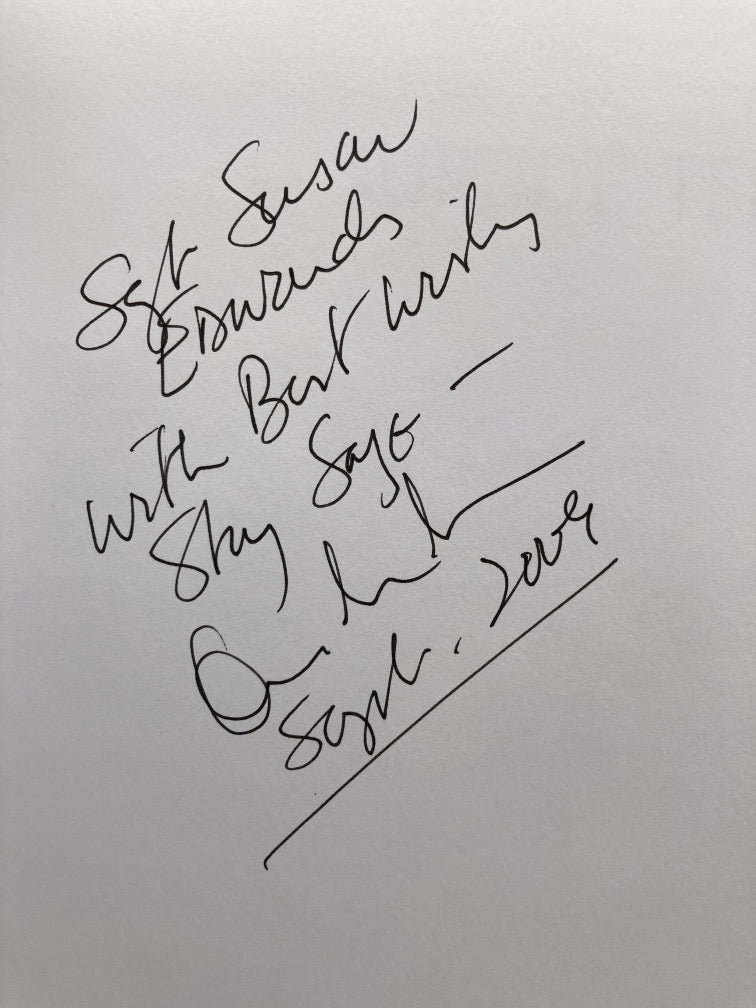 Sgt Susan
Edwards
with Best wishes
Stay Safe —
Sept. 2009